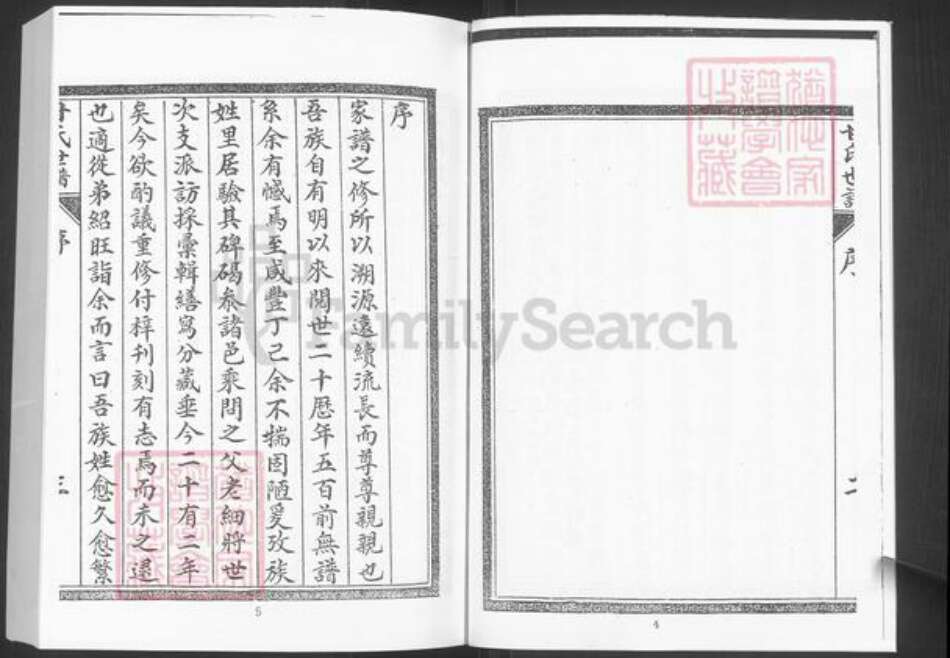 序
家譜之修所以溯源遠續流長而尊尊親親也
吾族自有明以來閱世二十歷年五百前無譜
系余有憾焉至咸豐丁巳余不揣固陋爰攷族
姓里居驗其碑碣叅諸邑乘問之父老細將世
次支派訪採彙輯繕寫分藏垂今二十有二年
矣今欲酌議重修付梓刊刻有志焉而未之逮
也適從弟紹旺詣余而言曰吾族姓愈久愈繁
氏世譜
序
三
5
氏世譜
序
二
4
譜學會
收藏
FamilySearch